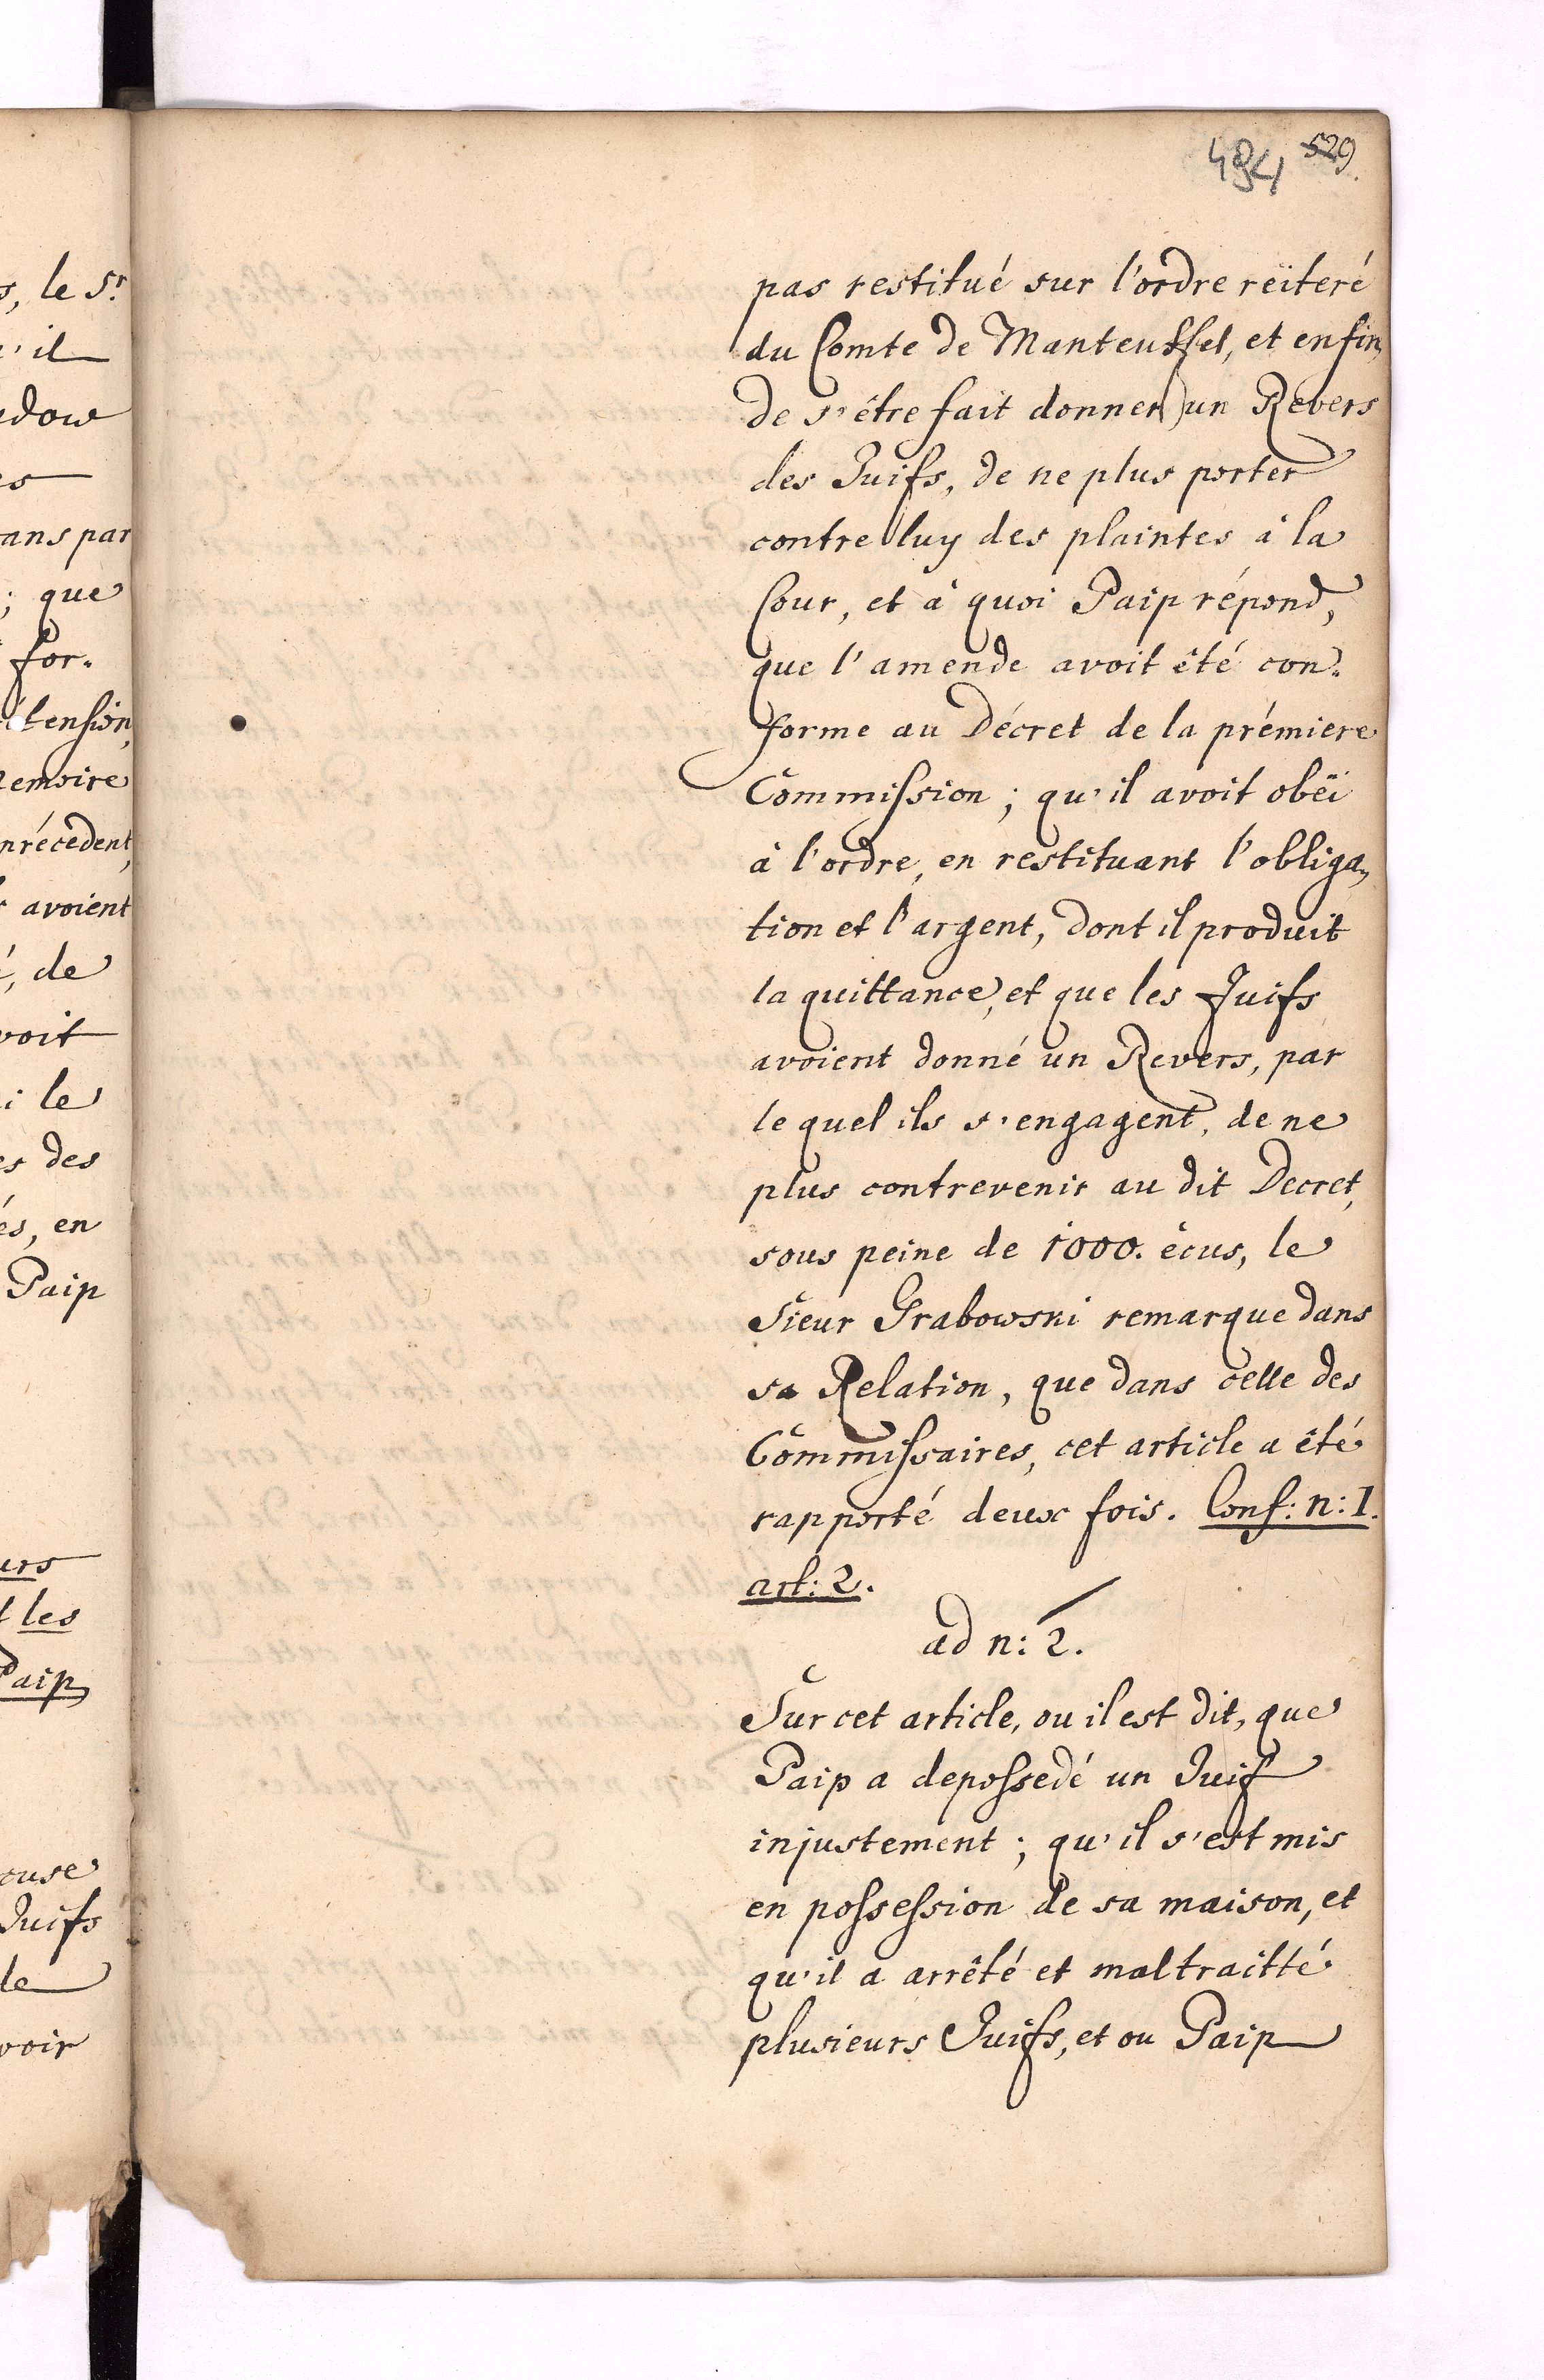 494 529.
pas restitué sur l'ordre reïteré
du Comte de Manteuffel, et enfin,
de s'être fait donner un Revers
des Juifs, de ne plus porter
contre luy des plaintes à la
Cour, et à quoi Paip répond,
que l'amende avoit été con-
forme au Décret de la prémiere
Commission; qu'il avoit obëi
à l'ordre, en restituant l'obliga-
tion et l'argent, dont il produit
la quittance, et que les Juifs
avoient donné un Revers, par
le quel ils s'engagent, de ne
plus contrevenir au dit Decret,
sous peine de 1000. écus, le
Sieur Grabowski remarque dans
sa Relation, que dans celle des
Commissaires, cet article a été
rapporté deux fois. Conf: n: 1.
art: 2.
ad n: 2.
Sur cet article, ou il est dit, que
Paip a depossedé un Juif
injustement; qu'il s'est mis
en possession de sa maison, et
qu'il a arrêté et maltraitté
plusieurs Juifs, et ou Paip
s, le Sr.
il
dow
es
ans par
; que
for-
tension,
emoire
précedent,
avoient
, de
voit
i le
es des
és, en
Paip
urs
les
Paip,
cuse
Juifs
le
voir